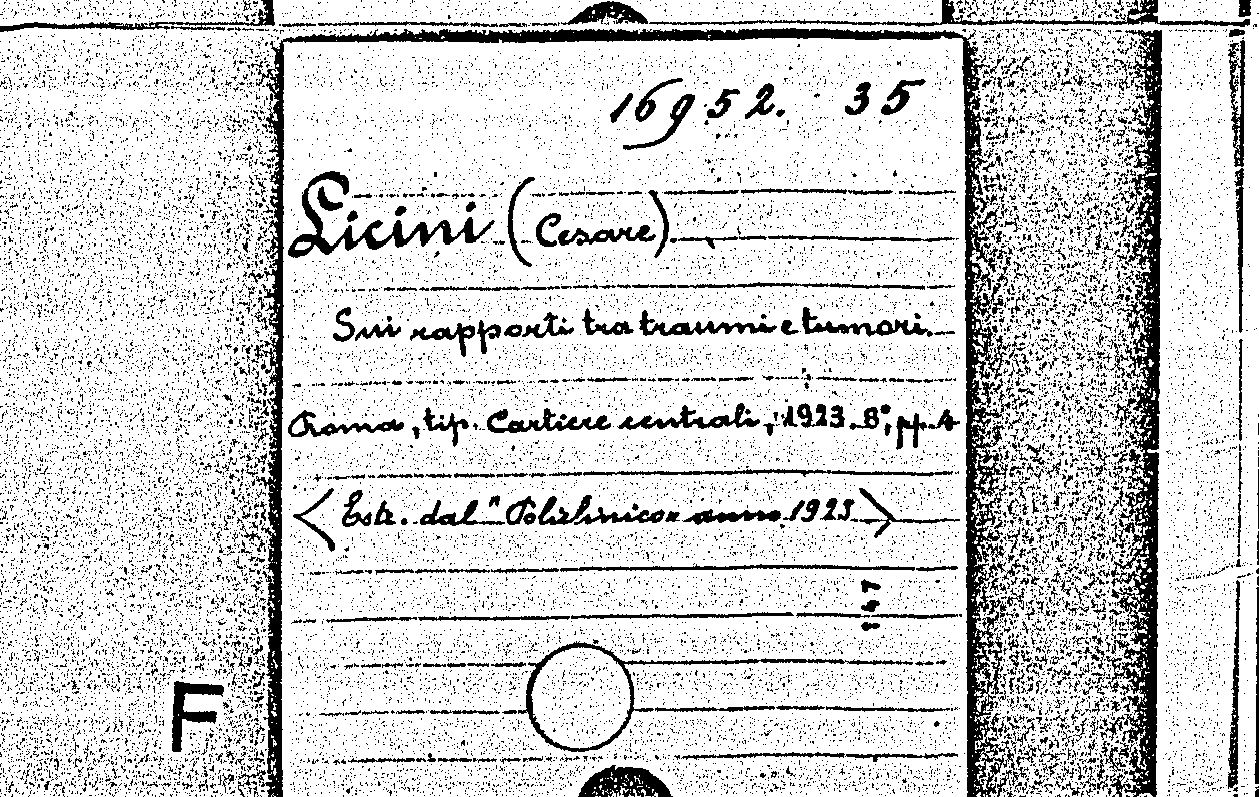 16952. 35
Licini (Cesare).
Sui rapporti tra traumi e tumori.
Roma, tip. Cartiere centrali, 1923. 8°, pp. 4
< Estr. dal "Policlinico" anno 1923 >
147
F